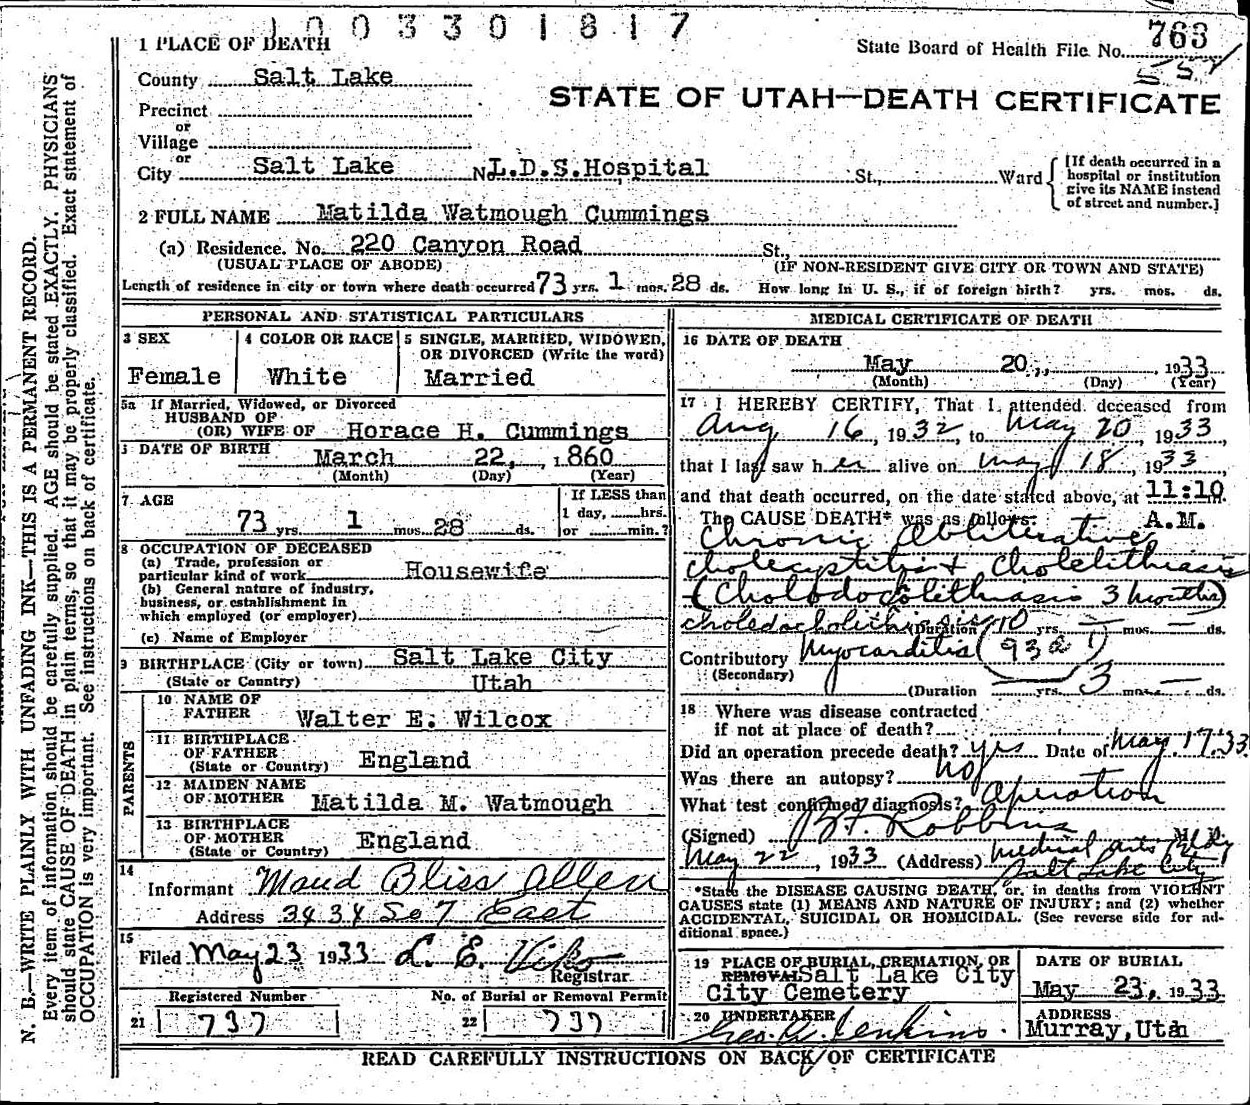 1003301817
1 PLACE OF DEATH
State Board of Health File No. 763
County Salt Lake
STATE OF UTAH—DEATH CERTIFICATE
Precinct
or
Village
or
City Salt Lake No L.D.S. Hospital St., Ward
[If death occurred in a
hospital or institution
give its NAME instead
of street and number.]
2 FULL NAME Matilda Watmough Cummings
(a) Residence. No. 220 Canyon Road St.,
(USUAL PLACE OF ABODE) (IF NON-RESIDENT GIVE CITY OR TOWN AND STATE)
Length of residence in city or town where death occurred 73 yrs. 1 mos. 28 ds. How long in U. S., if of foreign birth? yrs. mos. ds.
PERSONAL AND STATISTICAL PARTICULARS
3 SEX
Female
4 COLOR OR RACE
White
5 SINGLE, MARRIED, WIDOWED,
OR DIVORCED (Write the word)
Married
5a If Married, Widowed, or Divorced
HUSBAND OF
(OR) WIFE OF Horace H. Cummings
DATE OF BIRTH
March 22, 1860
(Month) (Day) (Year)
7 AGE
73 yrs. 1 mos. 28 ds.
If LESS than
1 day, hrs.
or min.?
8 OCCUPATION OF DECEASED
(a) Trade, profession or
particular kind of work Housewife
(b) General nature of industry,
business, or establishment in
which employed (or employer)
(c) Name of Employer
9 BIRTHPLACE (City or town) Salt Lake City
(State or Country) Utah
PARENTS
10 NAME OF
FATHER Walter E. Wilcox
11 BIRTHPLACE
OF FATHER
(State or Country) England
12 MAIDEN NAME
OF MOTHER Matilda M. Watmough
13 BIRTHPLACE
OF MOTHER
(State or Country) England
14
Informant Maud Bliss Allen
Address 3434 So 7 East
15
Filed May 23 1933 L. E. Viko
Registrar
Registered Number
21 737
No. of Burial or Removal Permit
22 737
MEDICAL CERTIFICATE OF DEATH
16 DATE OF DEATH
May 20, 1933
(Month) (Day) (Year)
17 I HEREBY CERTIFY, That I attended deceased from
Aug 16, 1932, to May 20, 1933,
that I last saw her alive on May 18, 1933,
and that death occurred, on the date stated above, at 11:10
The CAUSE DEATH* was as follows: A.M.
Chronic Obliterative
cholecystitis + Cholelithiasis
(Cholodocolithiasis 3 months)
choledocholithiasis (Duration 10 yrs. — mos. — ds.
Contributory Myocarditis (93a 1)
(Secondary)
(Duration yrs. 3 mos. — ds.
18 Where was disease contracted
if not at place of death?
Did an operation precede death? yes Date of May 17.33
Was there an autopsy? no
What test confirmed diagnosis? Operation
(Signed) Robbins M. D.
May 22, 1933 (Address) Medical Arts Bldg
Salt Lake City
*State the DISEASE CAUSING DEATH, or, in deaths from VIOLENT
CAUSES state (1) MEANS AND NATURE OF INJURY; and (2) whether
ACCIDENTAL, SUICIDAL OR HOMICIDAL. (See reverse side for ad-
ditional space.)
19 PLACE OF BURIAL, CREMATION, OR
REMOVAL Salt Lake City
City Cemetery
DATE OF BURIAL
May 23, 1933
20 UNDERTAKER
Geo. W. Jenkins.
ADDRESS
Murray, Utah
READ CAREFULLY INSTRUCTIONS ON BACK OF CERTIFICATE
N. B.—WRITE PLAINLY WITH UNFADING INK—THIS IS A PERMANENT RECORD.
Every item of information should be carefully supplied. AGE should be stated EXACTLY. PHYSICIANS
should state CAUSE OF DEATH in plain terms, so that it may be properly classified. Exact statement of
OCCUPATION is very important. See instructions on back of certificate.